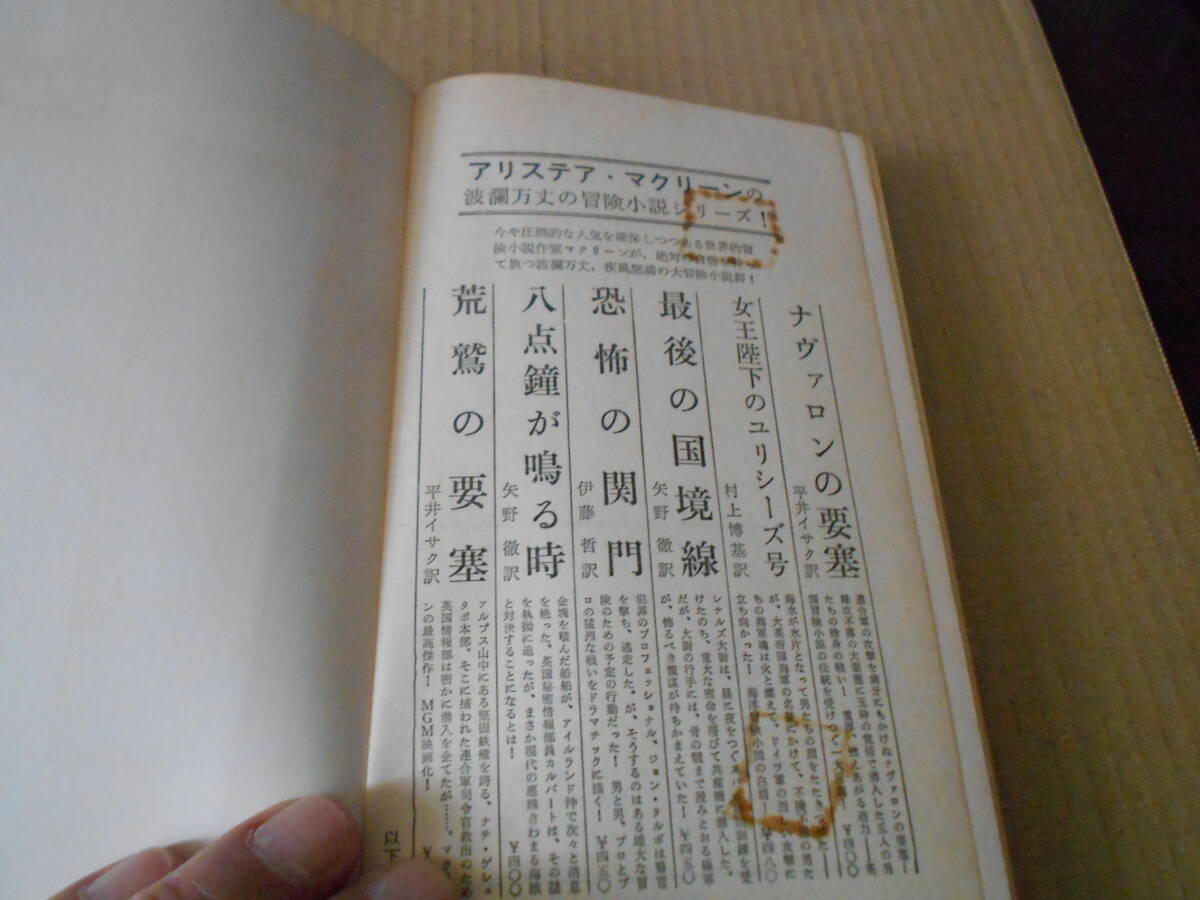 アリステア・マクリーンの
波瀾万丈の冒険小説シリーズ!
今や圧倒的な人気を確保しつつある世界的冒
険小説作家マクリーンが、絶対の自信を持っ
て放つ波瀾万丈,疾風怒濤の大冒険小説群!
ナヴァロンの要塞
平井イサク訳
連合軍の攻撃を歯牙にもかけぬナヴァロンの要塞―
難攻不落の大要塞に玉砕の覚悟で潜入した五人の男
たちの捨身の戦い! 燃えあがる迫力――英
国冒険小説の伝統を受けつぐ一大 ¥400
女王陛下のユリシーズ号
村上博基訳
海水が氷片となって男たちの顔をたたきつけた
が、大英帝国海軍の名誉にかけて、不撓不屈の男た
ちの海軍魂は火と燃えて、ドイツ軍の 攻撃に
立ち向かった! 海洋冒険小説の白眉! ¥480
最後の国境線
矢野徹訳
レナルズ大尉は、昼に夜をつぐ 訓練を受
けたのち、重大な密命を帯びて共産圏に潜入した。
だが、大尉の行手には、骨の髄まで浸みとおる極寒
が、怖るべき策謀が待ちかまえていた! ¥450
恐怖の関門
伊藤哲訳
犯罪のプロフェッショナル、ジョン・タルボは警官
を撃ち、逃走した。が、そうするのはある雄大な冒
険のための予定の行動だった! 男と男、プロとプ
ロの猛烈な戦いをドラマチックに描く! ¥450
八点鐘が鳴る時
矢野徹訳
金塊を積んだ船舶が、アイルランド沖で次々と消息
を絶った。英国秘密情報部員カルバートは、その謎
を執拗に追ったが、まさか現代の悪辣きわまる海賊
と対決することになるとは! ¥400
荒鷲の要塞
平井イサク訳
アルプス山中にある堅固鉄壁を誇る、ナチ・ゲシュ
タポ本部。そこに捕われた連合軍司令官救出のため
英国情報部は密かに潜入を企てたが……。マクリ
ンの最高傑作! MGM映画化! ¥
以下